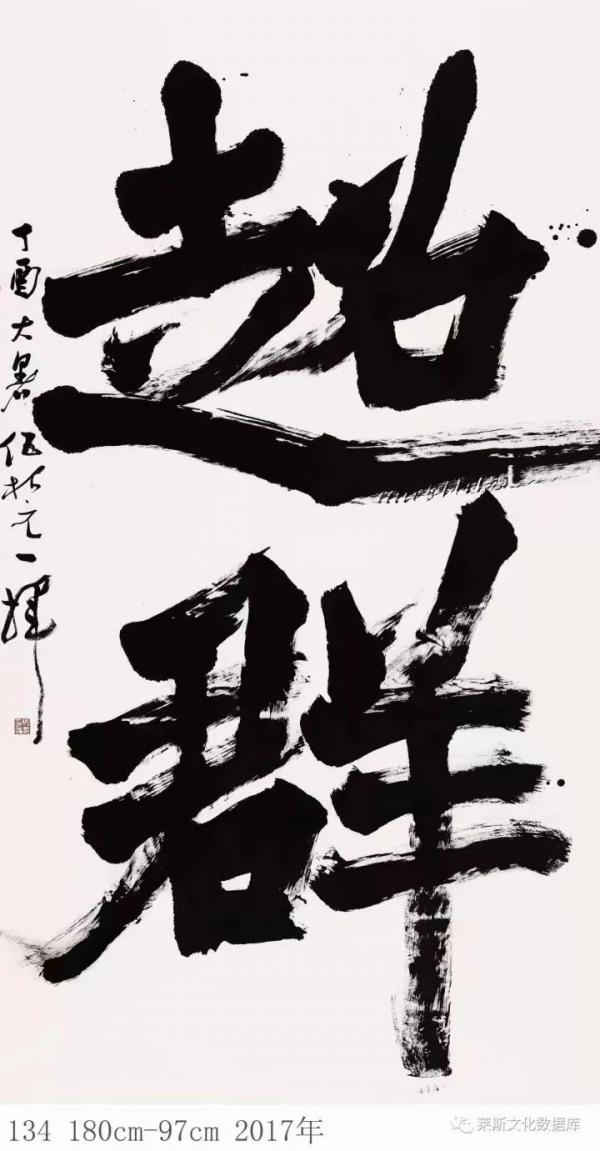 超
群
丁酉大暑伍树元一挥
134 180cm-97cm 2017年
莱斯文化数据库